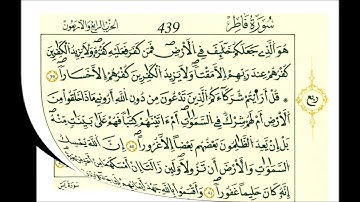 الحزب الرابع والاربعون
439
سُورَةُ فَاطِرٍ
هُوَ الَّذِي جَعَلَكُمْ خَلَٰٓئِفَ فِي الْأَرْضِ فَمَن كَفَرَ فَعَلَيْهِ كُفْرُهُ وَلَا يَزِيدُ الْكَٰفِرِينَ
كُفْرُهُمْ عِندَ رَبِّهِمْ إِلَّا مَقْتًا وَلَا يَزِيدُ الْكَٰفِرِينَ كُفْرُهُمْ إِلَّا خَسَارًا
ربع
قُلْ أَرَءَيْتُمْ شُرَكَآءَكُمُ الَّذِينَ تَدْعُونَ مِن دُونِ اللَّهِ أَرُونِي مَاذَا خَلَقُوا مِنَ
الْأَرْضِ أَمْ لَهُمْ شِرْكٌ فِي السَّمَٰوَٰتِ أَمْ ءَاتَيْنَٰهُمْ كِتَٰبًا فَهُمْ عَلَىٰ بَيِّنَتٍ مِّنْهُ
بَلْ إِن يَعِدُ الظَّٰلِمُونَ بَعْضُهُم بَعْضًا إِلَّا غُرُورًا إِنَّ اللَّهَ يُمْسِكُ
السَّمَٰوَٰتِ وَالْأَرْضَ أَن تَزُولَا وَلَئِن زَالَتَآ إِنْ أَمْسَكَهُمَا
إِنَّهُ كَانَ حَلِيمًا غَفُورًا وَأَقْسَمُوا بِاللَّهِ جَهْدَ